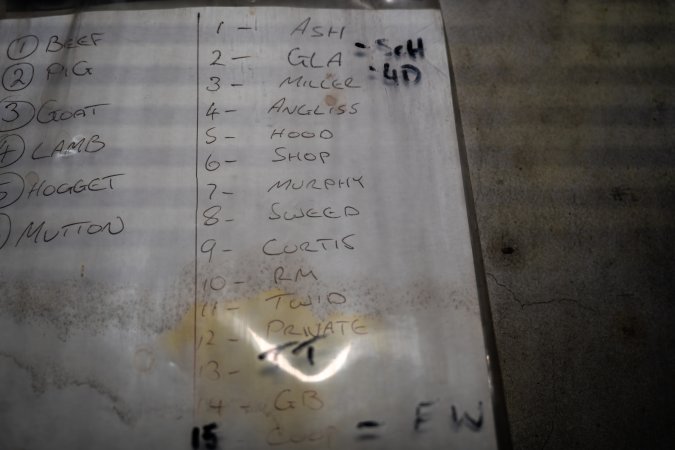 ① BEEF
② PIG
③ GOAT
4 LAMB
5 HOGGET
MUTTON
1 - ASH
2 - GLA = SCH
3 - MILLER · 4D
4 - ANGLISS
5 - HOOD
6 - SHOP
7 - MURPHY
8 - SWEED
9 - CURTIS
10 - RM
11 - TWID
12 - PRIVATE
13 - TT
14 - GB
15 - COOP = FW